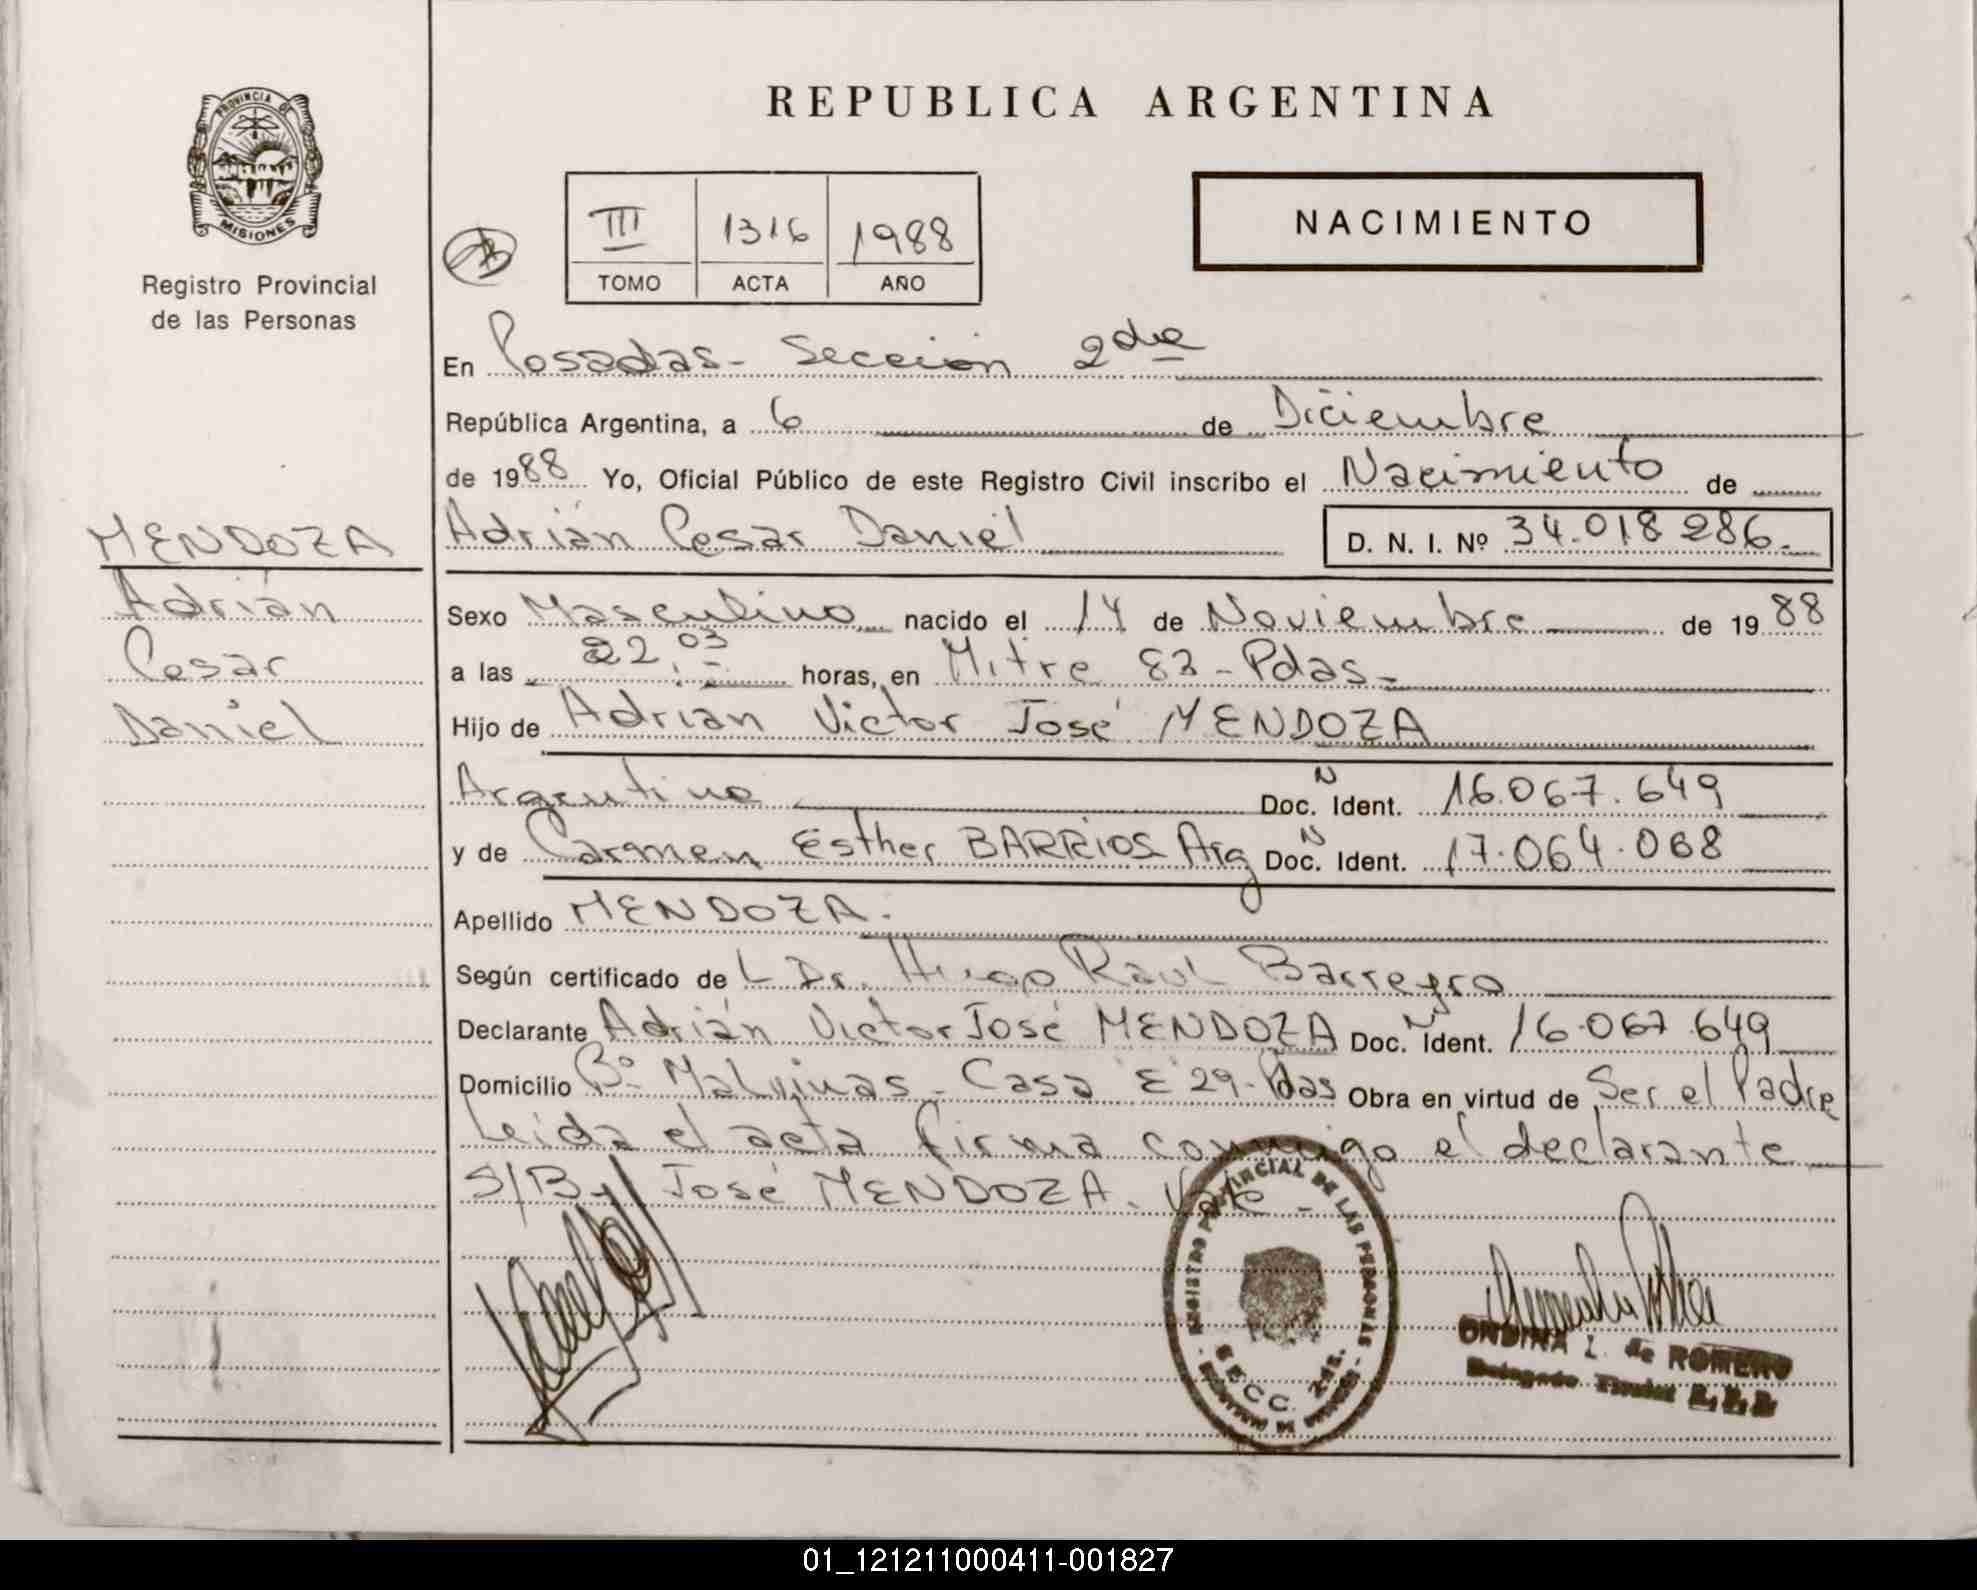 REPUBLICA ARGENTINA
PROVINCIA DE
MISIONES
Registro Provincial
de las Personas
III 1316 1988
TOMO ACTA AÑO
NACIMIENTO
En Posadas - Sección 2da
República Argentina, a 6 de Diciembre
de 1988 Yo, Oficial Público de este Registro Civil inscribo el Nacimiento de
Adrián Cesar Daniel D. N. I. Nº 34.018 286.-
MENDOZA
Adrián
Cesar
Daniel
Sexo Masculino nacido el 14 de Noviembre de 1988
a las 22,03 horas, en Mitre 83 - Pdas.-
Hijo de Adrian Victor José MENDOZA
Argentino Doc. N Ident. 16.067.649
y de Carmen Esther BARRIOS Arg Doc. N Ident. 17.064.068
Apellido MENDOZA.
Según certificado de L Dr. Hugo Raul Barreyro
Declarante Adrián Victor José MENDOZA Doc. N Ident. 16.067.649
Domicilio Bº Malvinas - Casa E 29 - Pdas Obra en virtud de Ser el Padre
Leida el acta firma conmigo el declarante
S/B, José MENDOZA. Vale -
REGISTRO PROVINCIAL DE LAS PERSONAS
SECC. 2da.
ONDINA L. de ROMERO
Delegado Titular R.P.P
01_121211000411-001827